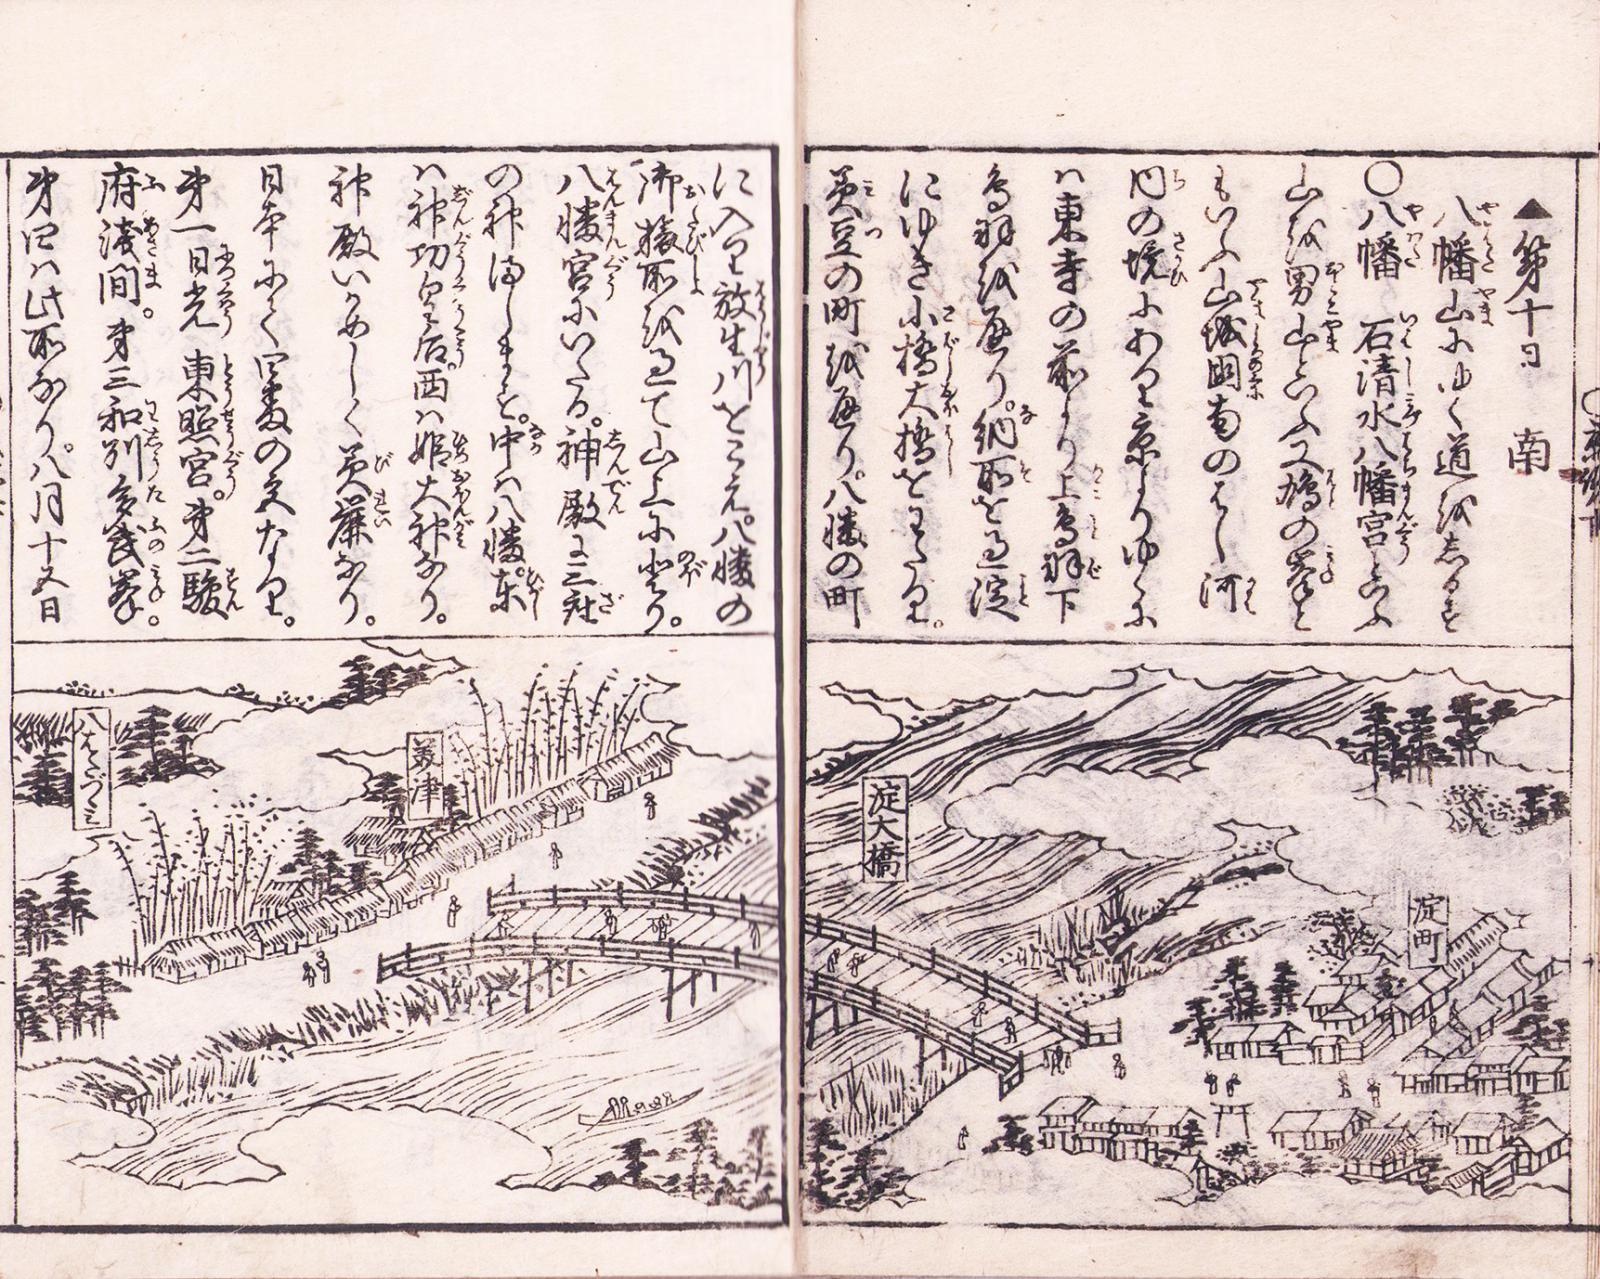 ▲第十日　南
八幡山にゆく道を志るす
〇八幡　石清水八幡宮といふ
山を男山といふ又鳩の峯と
もいふ山城国南のはし河
内の境にあり京よりゆくに
ハ東寺の前より上鳥羽下
鳥羽を通り。納所を過淀
にゆき小橋大橋をわたり。
美豆の町を通り。八幡の町
に入り放生川をこえ。八幡の
御旅所を過て山上に登り。
八幡宮にいたる。神殿に三社
の神満します。中ハ八幡。東
ハ神功皇后。西ハ姫大神なり。
神殿いかめしく美麗なり。
日本にて四番の宮なり。
第一日光東照宮。第二駿
府浅間。第三和州多武峯。
第四ハ此所なり。八月十五日
淀町
淀大橋
美津
八はたづゝミ